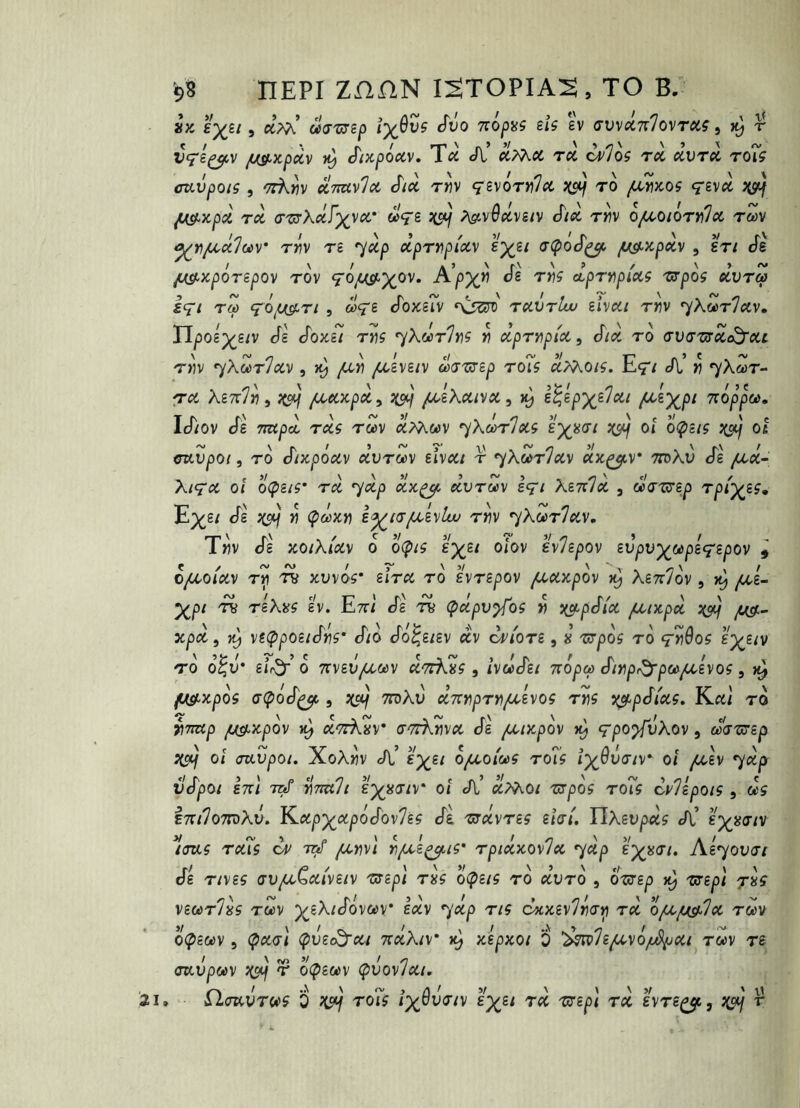 98 ΠΕΡΙ ΖΩΩΝ ΙΣΤΟΡΙΑΣ, ΤΟ Β.
ἐκ ἔχει, ἀλλ' ὥσπερ ἰχθῦς δύο πόρους εἰς ἓν συνάπτοντας, καὶ τὴν
ὑστέραν μακρὰν καὶ δικρόαν. Τὰ δ' ἄλλα τὰ ἐντὸς τὰ αὐτὰ τοῖς
σαύροις, πλὴν ἅπαντα διὰ τὴν στενότητα καὶ τὸ μῆκος στενὰ καὶ
μακρὰ τὰ σπλάγχνα· ὥστε καὶ λανθάνειν διὰ τὴν ὁμοιότητα τῶν
σχημάτων· τήν τε γὰρ ἀρτηρίαν ἔχει σφόδρα μακρὰν, ἔτι δὲ
μακρότερον τὸν στόμαχον. Ἀρχὴ δὲ τῆς ἀρτηρίας πρὸς αὐτῷ
ἐστι τῷ στόματι, ὥστε δοκεῖν ὑπὸ ταύτην εἶναι τὴν γλῶτταν.
Προέχειν δὲ δοκεῖ τῆς γλώττης ἡ ἀρτηρία, διὰ τὸ συσπᾶσθαι
τὴν γλῶτταν, καὶ μὴ μένειν ὥσπερ τοῖς ἄλλοις. Ἔστι δ' ἡ γλῶτ-
τα λεπτὴ, καὶ μακρὰ, καὶ μέλαινα, καὶ ἐξέρχεται μέχρι πόρρω.
Ἴδιον δὲ παρὰ τὰς τῶν ἄλλων γλώττας ἔχουσι καὶ οἱ ὄφεις καὶ οἱ
σαῦροι, τὸ δικρόαν αὐτῶν εἶναι τὴν γλῶτταν ἄκραν· πολὺ δὲ μά-
λιστα οἱ ὄφεις· τὰ γὰρ ἄκρα αὐτῶν ἐστι λεπτὰ, ὥσπερ τρίχες.
Ἔχει δὲ καὶ ἡ φώκη ἐσχισμένην τὴν γλῶτταν.
Τὴν δὲ κοιλίαν ὁ ὄφις ἔχει οἷον ἔντερον εὐρυχωρέστερον,
ὁμοίαν τῇ τοῦ κυνός· εἶτα τὸ ἔντερον μακρὸν καὶ λεπτὸν, καὶ μέ-
χρι τοῦ τέλους ἕν. Ἐπὶ δὲ τοῦ φάρυγγος ἡ καρδία μικρὰ καὶ μα-
κρὰ, καὶ νεφροειδής· διὸ δόξειεν ἂν ἐνίοτε, οὐ πρὸς τὸ στῆθος ἔχειν
τὸ ὀξύ· εἶθ' ὁ πνεύμων ἁπλοῦς, ἰνώδει πόρῳ διηρθρωμένος, καὶ
μακρὸς σφόδρα, καὶ πολὺ ἀπηρτημένος τῆς καρδίας. Καὶ τὸ
ἧπαρ μακρὸν καὶ ἁπλοῦν· σπλῆνα δὲ μικρὸν καὶ στρογγύλον, ὥσπερ
καὶ οἱ σαῦροι. Χολὴν δ' ἔχει ὁμοίως τοῖς ἰχθύσιν· οἱ μὲν γὰρ
ὕδροι ἐπὶ τῷ ἥπατι ἔχουσιν· οἱ δ' ἄλλοι πρὸς τοῖς ἐντέροις, ὡς
ἐπιτοπολύ. Καρχαρόδοντες δὲ πάντες εἰσί. Πλευρὰς δ' ἔχουσιν
ἴσας ταῖς ἐν τῷ μηνὶ ἡμέραις· τριάκοντα γὰρ ἔχουσι. Λέγουσι
δέ τινες συμβαίνειν περὶ τοὺς ὄφεις τὸ αὐτὸ, ὅπερ καὶ περὶ τοὺς
νεοττοὺς τῶν χελιδόνων· ἐὰν γάρ τις ἐκκεντήσῃ τὰ ὄμματα τῶν
ὄφεων, φασὶ φύεσθαι πάλιν· καὶ κέρκοι δὲ ἀποτεμνόμεναι τῶν τε
σαύρων καὶ τῶν ὄφεων φύονται.
21. Ὡσαύτως δὲ καὶ τοῖς ἰχθύσιν ἔχει τὰ περὶ τὰ ἔντερα, καὶ τὴν